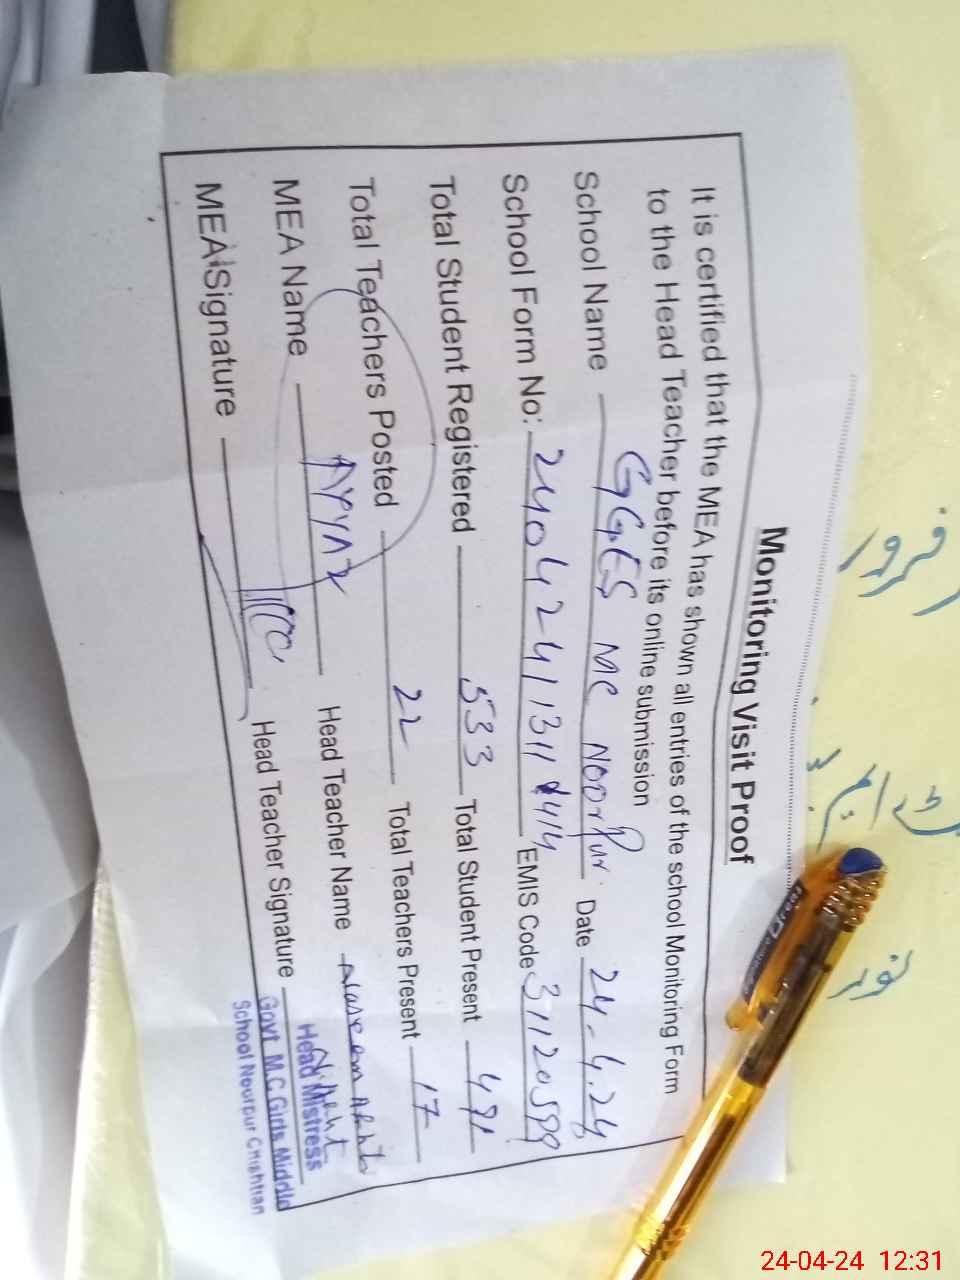 Monitoring Visit Proof
It is certified that the MEA has shown all entries of the school Monitoring Form
to the Head Teacher before its online submission
School Name GGES MC Noorpur Date 24-4.24
School Form No: EMIS Code 31120599
Total Student Registered 533 Total Student Present 491
Total Teachers Posted 22 Total Teachers Present 17
MEA Name AYYAZ Head Teacher Name Naseem Akhtar
MEA Signature Head Teacher Signature
Head Mistress
Govt M.C Girls Middle
School Nourpur Chishtian
نور
24-04-24 12:31